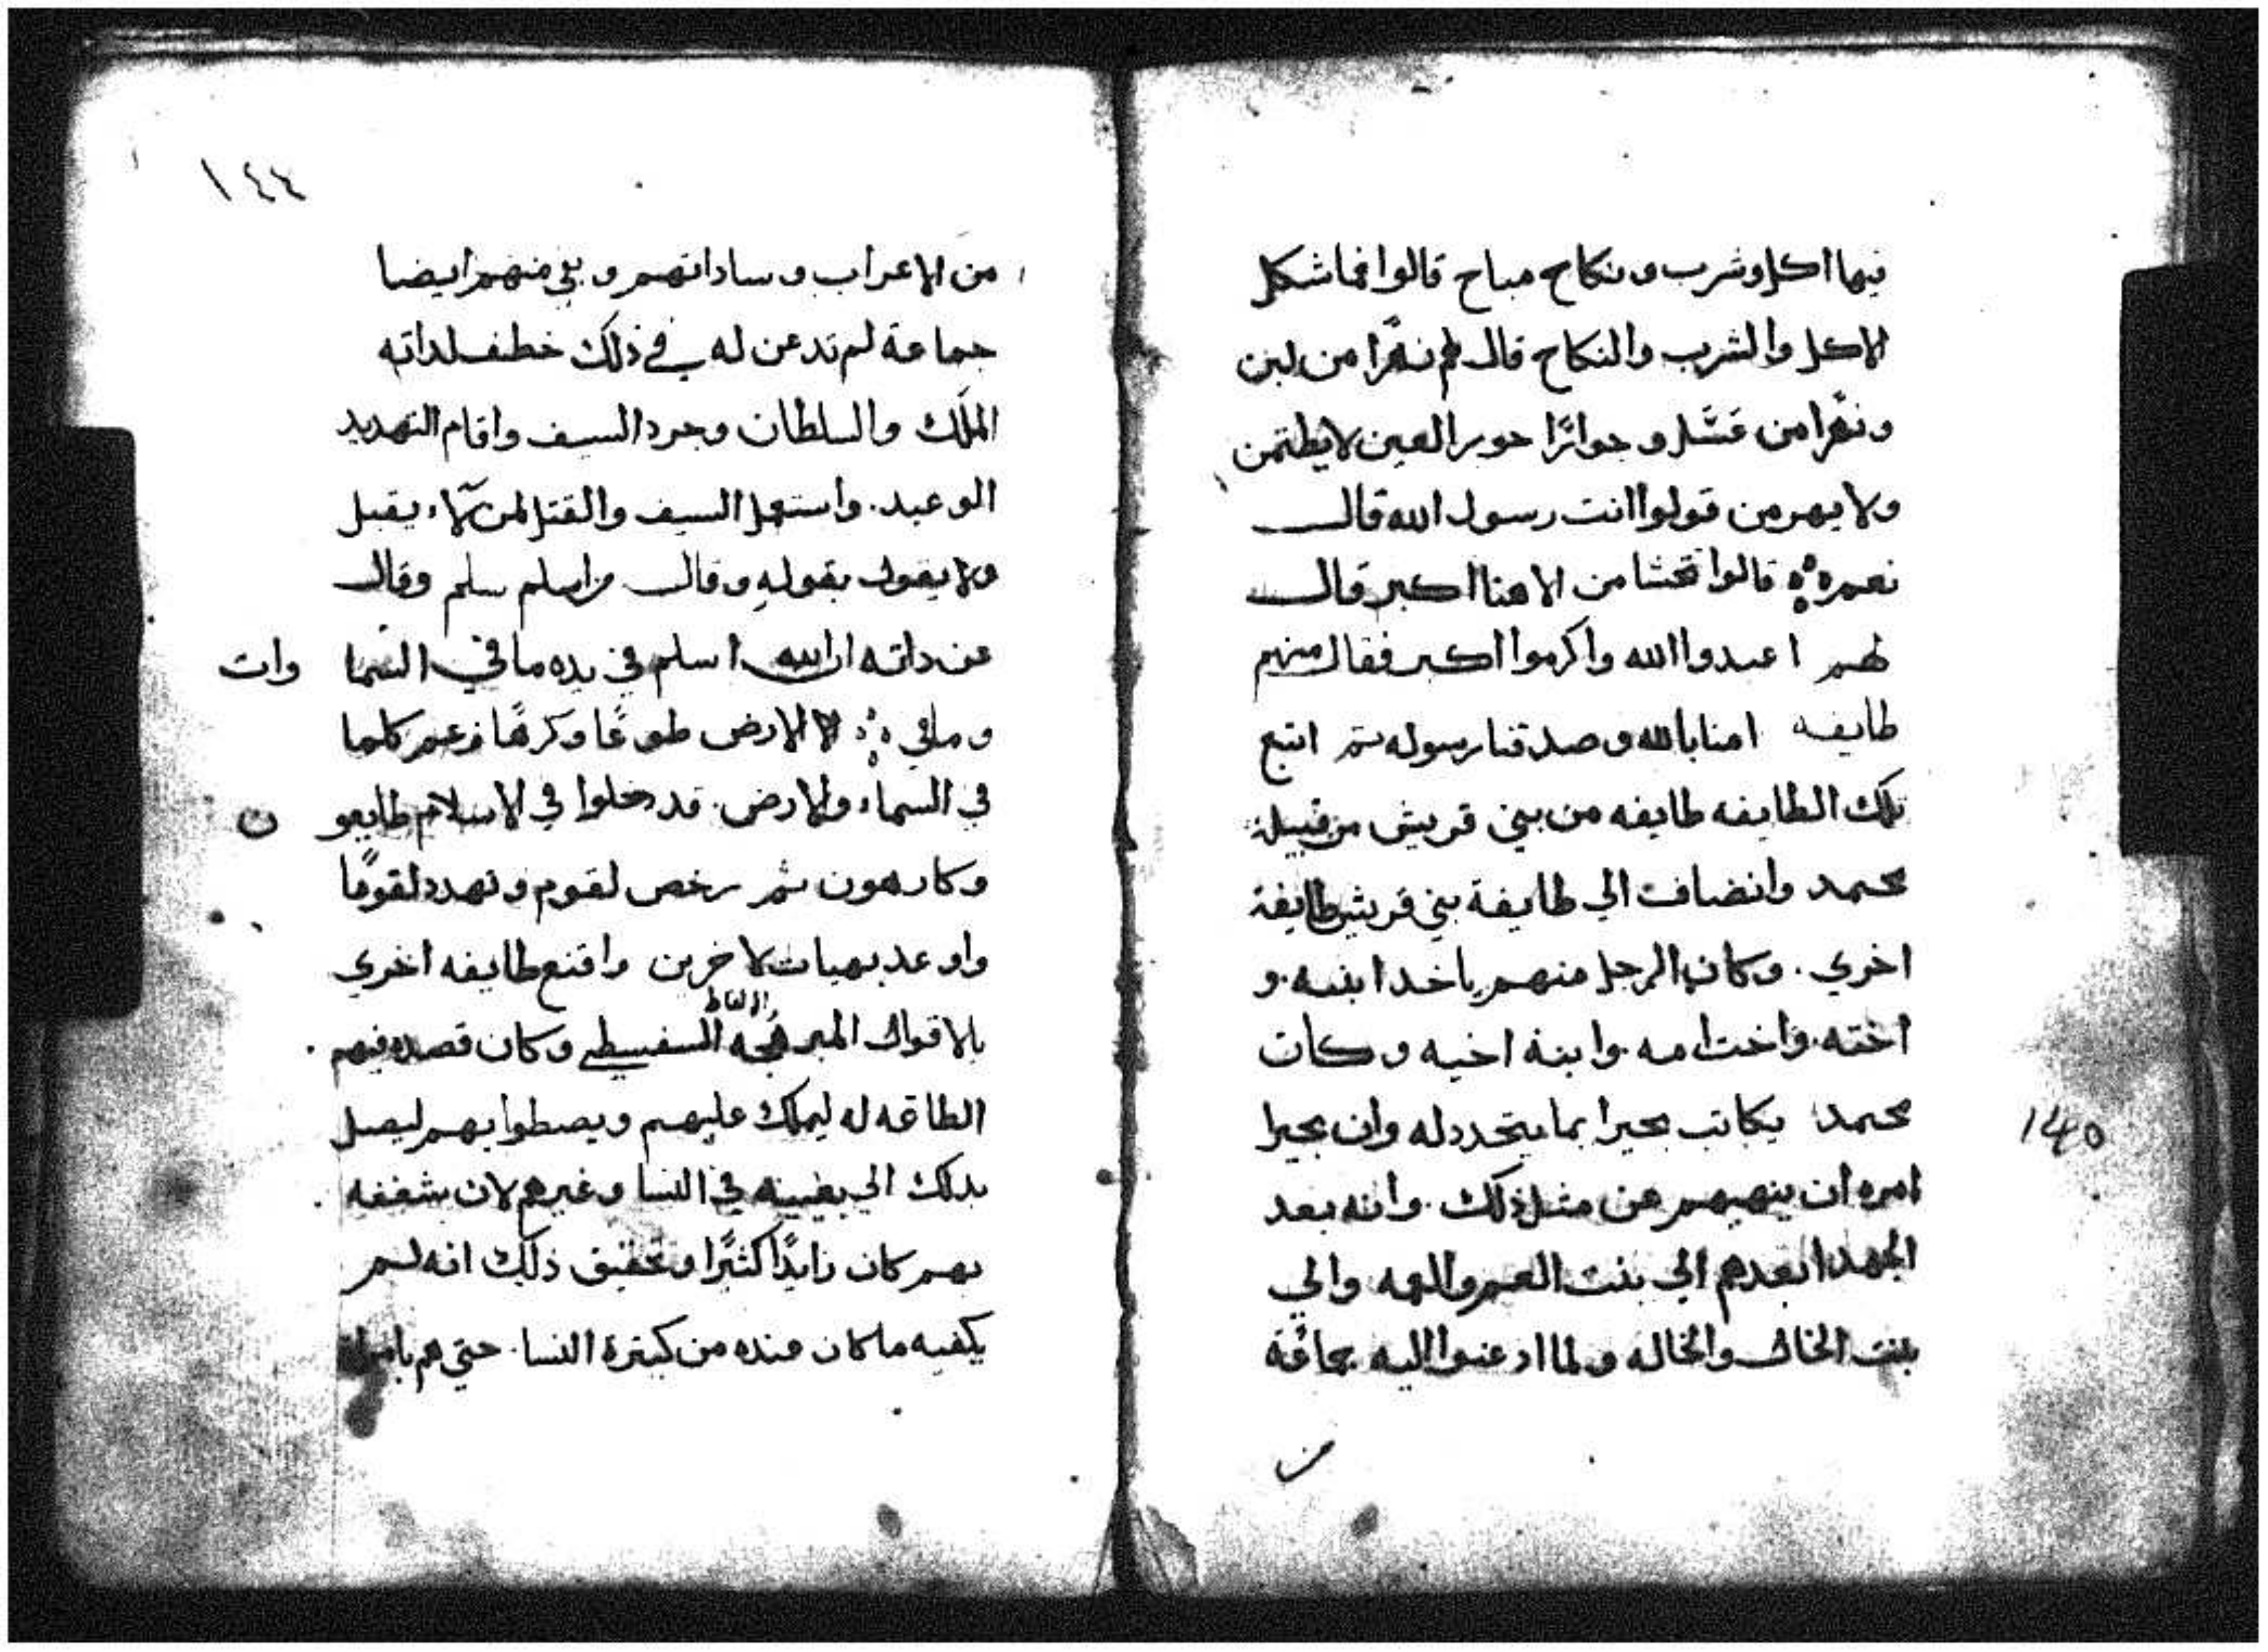 فيها اكل وشرب ونكاح مباح قالوا فما شكل
الاكل والشرب والنكاح قال لهم نهرًا من لبن
ونهرًا من عسل وجوارًا حور العين لا يطتمن
ولا يهرمن قولوا انت رسول الله قال
نعم قالوا من الاهنا اكبر قال
لهم اعبدوا الله واكرموا اكبر فقال منهم
طايفه امنا بالله وصدقنا رسوله تم اتبع
تلك الطايفه طايفه من بني قريش من قبيلة
محمد وانضافت الي طايفة بني قريش طايفة
اخري . وكان الرجل منهم ياخد ابنه . و
اخته . واخت امه . وابنة اخيه وكان
محمد يكاتب بحيرا بما يتحدد له وان بحيرا
145
امره ان ينهيهم عن مثل ذلك . وانه بعد
الجهد ابعدهم الي بنت العم والعمه والي
بنت الخال والخاله ولما ادعنوا اليه جماعة
من
١٤٤
من الاعراب وساداتهم وبقي منهم ايضا
جماعة لم تدعن له في ذلك خطف لداته
الملك والسلطان وجرد السيف واقام التهديد
الوعيد . واستعمل السيف والقتل لمن لا يقبل
ولا يقول بقوله وقال من اسلم سلم وقال
عن داته ان الله اسلم في يده ما في السما وات
وما في الارض طوعًا وكرهًا وزعم كلما
في السماء والارض . قد دخلوا في الاسلام طايعو ن
وكارهون ثم رخص لقوم وتهدد لقومًا
واوعد بهبات لاخرين واقنع طايفه اخري
الالفاظ
بالاقوال المبرهجه السفسطي وكان قصده فيهم .
الطاعه له ليملك عليهم ويصطوا بهم ليصل
بدلك الي بغيته في النسا وغيرهم لان بشغفه .
بهم كان زايدًا كثيرًا وتحقيق ذلك انه لم
يكفيه ما كان عنده من كيترة النسا . حتي هم